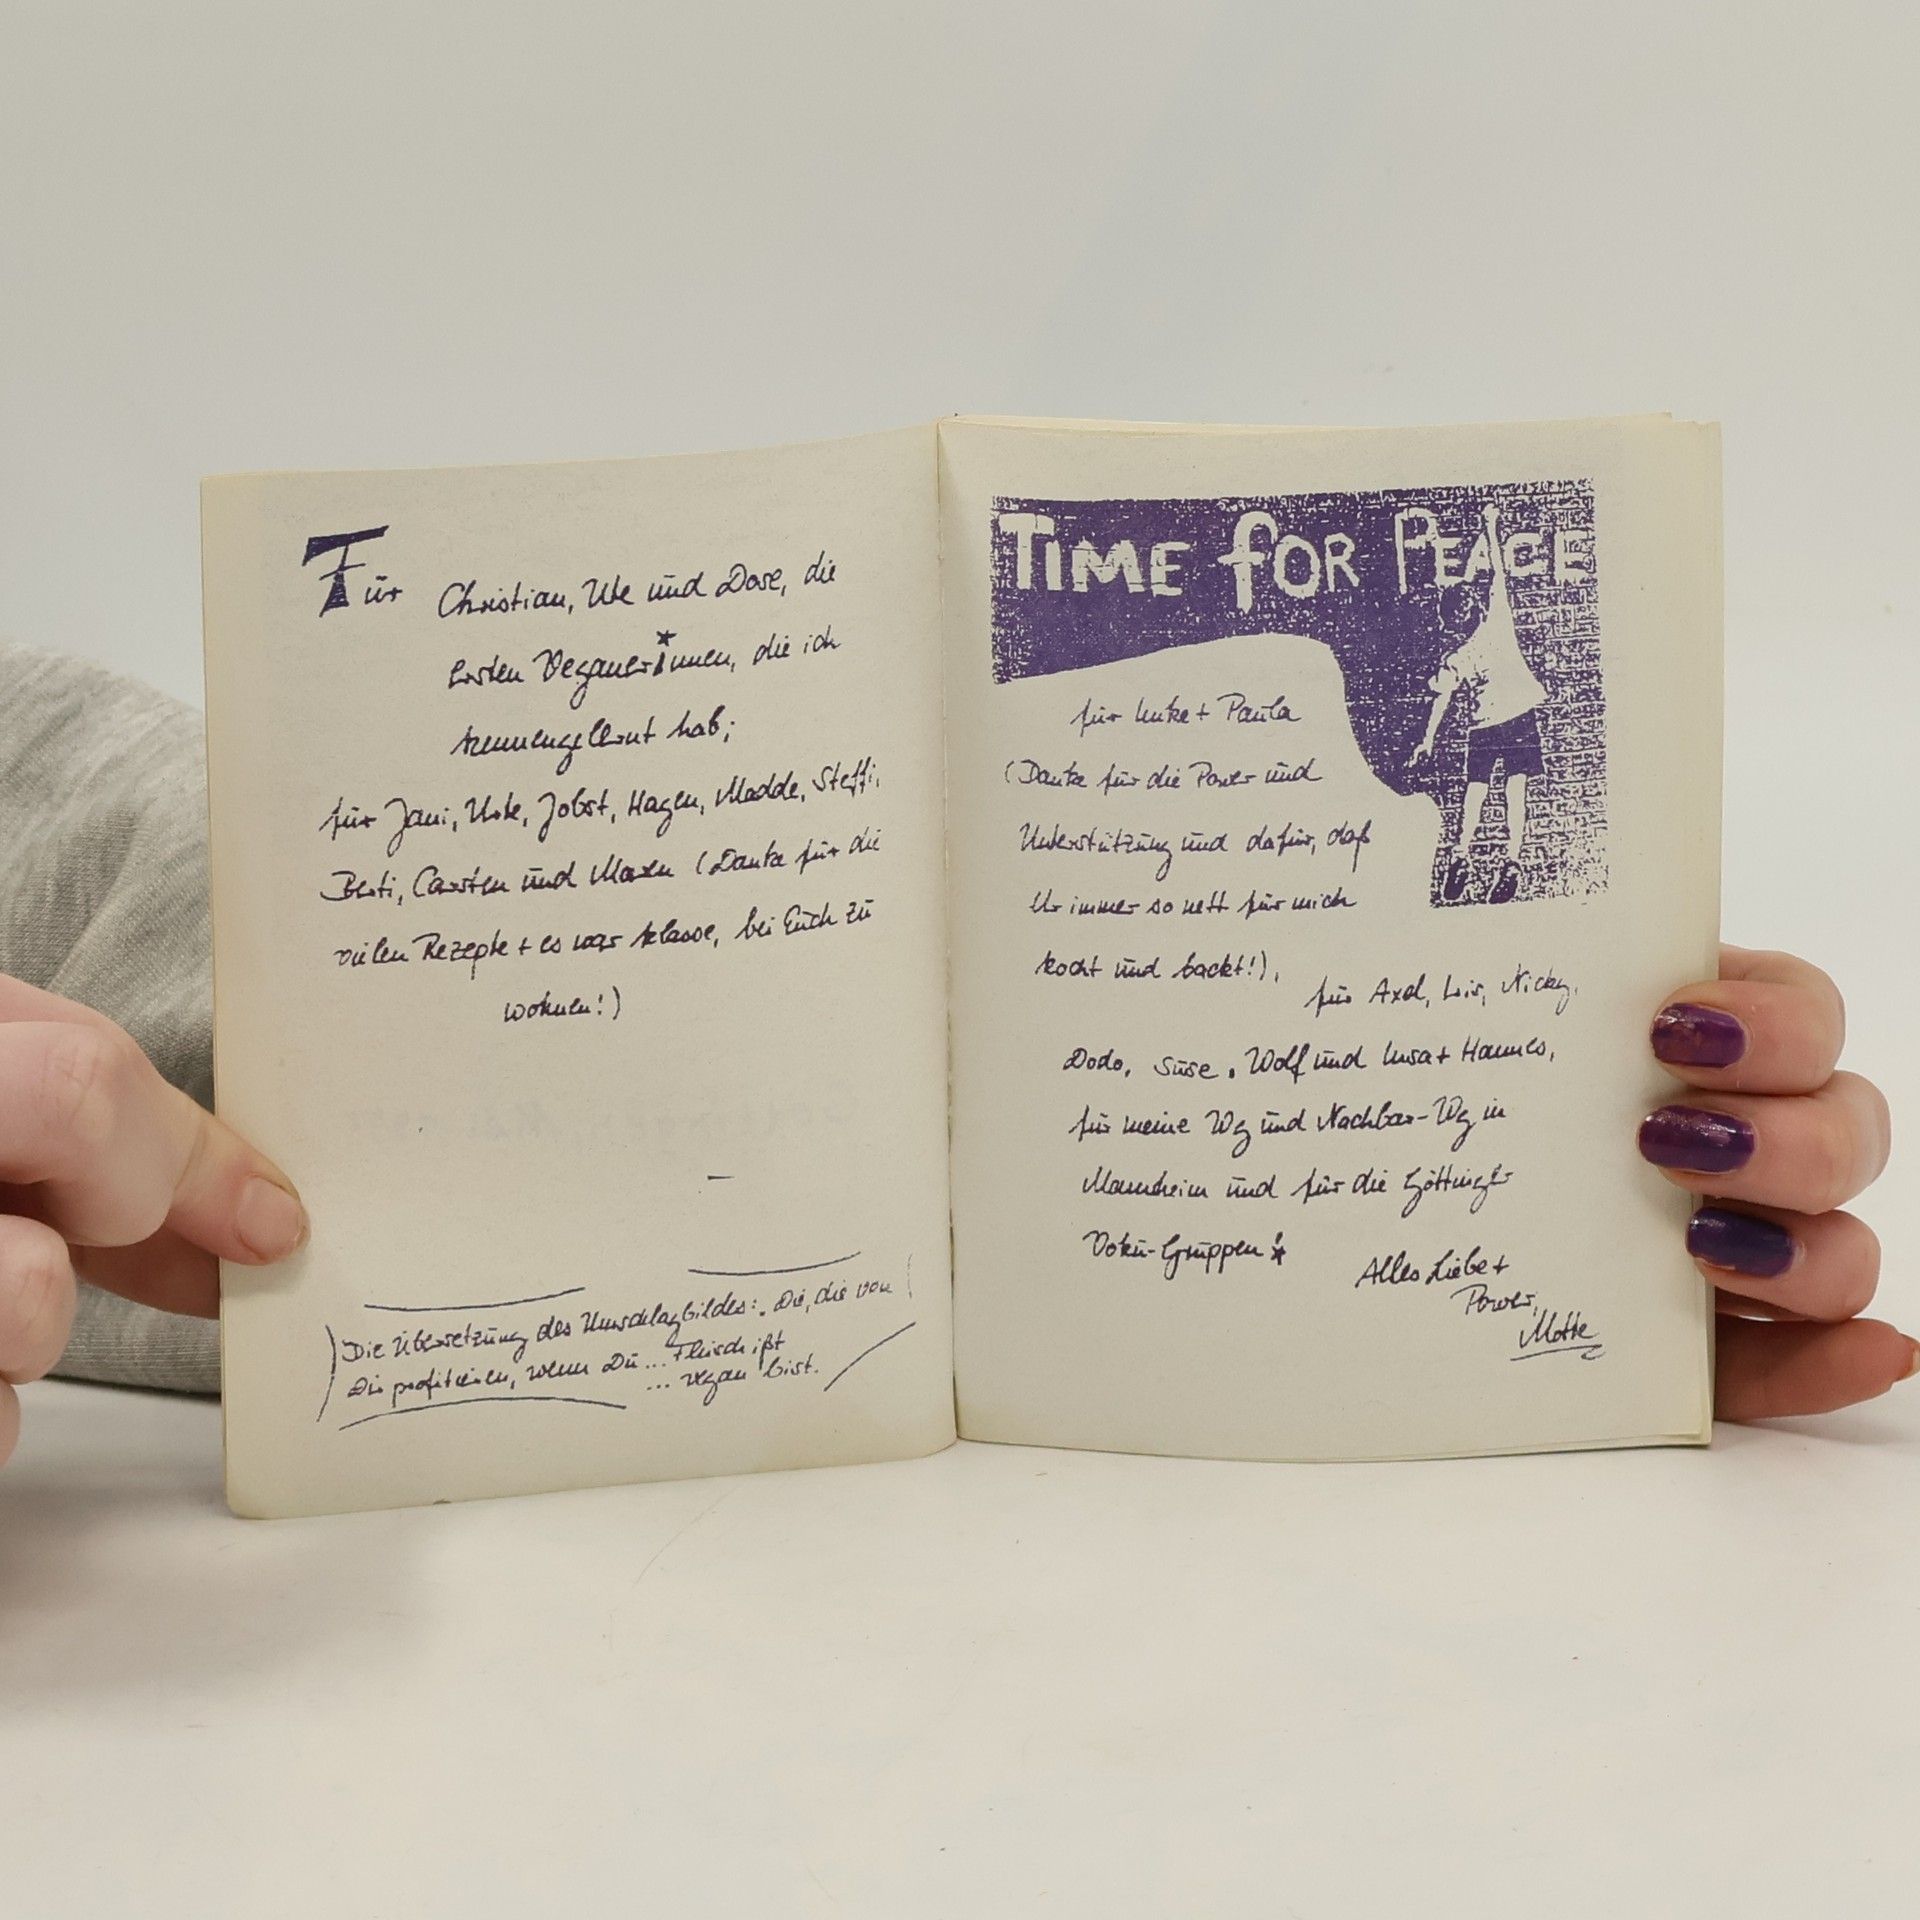 Für Christian, Ute und Dose, die
ersten Veganerinnen, die ich
kennengelernt hab;
für Jani, Urte, Jobst, Hagen, Madde, Steffi,
Berti, Carsten und Maren (Danke für die
vielen Rezepte + es war klasse, bei Euch zu
wohnen!)
(Die Übersetzung des Umschlagbildes: Die, die von
Dir profitieren, wenn Du ... Fleisch ißt
... vegan bist.
TIME FOR PEACE
für Imke + Paula
(Danke für die Power und
Unterstützung und dafür, daß
Ihr immer so nett für mich
kocht und backt!),
für Axel, Nicky,
Dodo, Suse, Wolf und Insa + Hannes,
für meine Wg und Nachbar-Wg in
Mannheim und für die Göttinger
Vokü-Gruppen!
Alles Liebe +
Power,
Motte